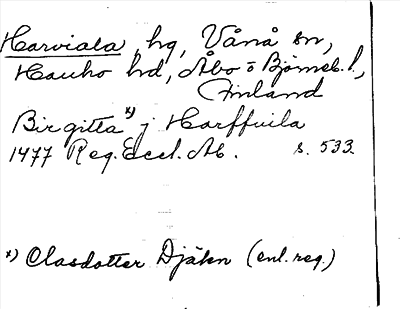 Harviala, hg, Vånå sn,
Hauho hd, Åbo o Björneb. l.,
Finland
Birgitta x) j Harffuila
1477 Reg. Eccl. Ab. s. 533.
x) Clasdotter Djäkn (enl. reg.)